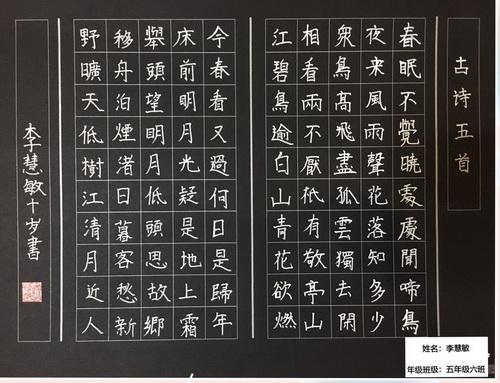 古诗五首
春眠不覺曉處處聞啼鳥
夜来風雨聲花落知多少
衆鳥高飛盡孤雲獨去閑
相看兩不厭祇有敬亭山
江碧鳥逾白山青花欲燃
今春看又過何日是歸年
床前明月光疑是地上霜
舉頭望明月低頭思故鄉
移舟泊煙渚日暮客愁新
野曠天低樹江清月近人
李慧敏十岁書
姓名：李慧敏
年级班级：五年级六班